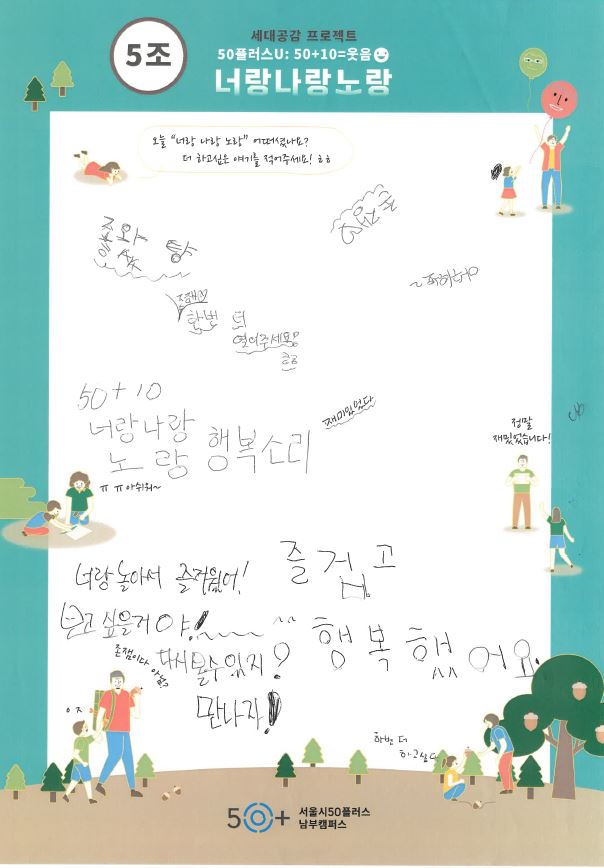 5조
세대공감 프로젝트
50플러스U: 50+10=웃음
너랑나랑노랑
오늘 "너랑 나랑 노랑" 어떠셨나요?
더 하고싶은 얘기를 적어주세요! ㅎㅎ
한번 더
열어주세요!
ㅎㅎ
50+10
너랑나랑
노랑 행복소리
재미있었다
ㅠㅠ아쉬워~
정말
재밌었습니다!
너랑 놀아서 즐거웠어!
즐겁고
보고 싶을거야!
^^ 행복했어요.
존잼이다
다시 볼수있지?
만나자!
한번 더
하고싶다
50+
서울시50플러스
남부캠퍼스